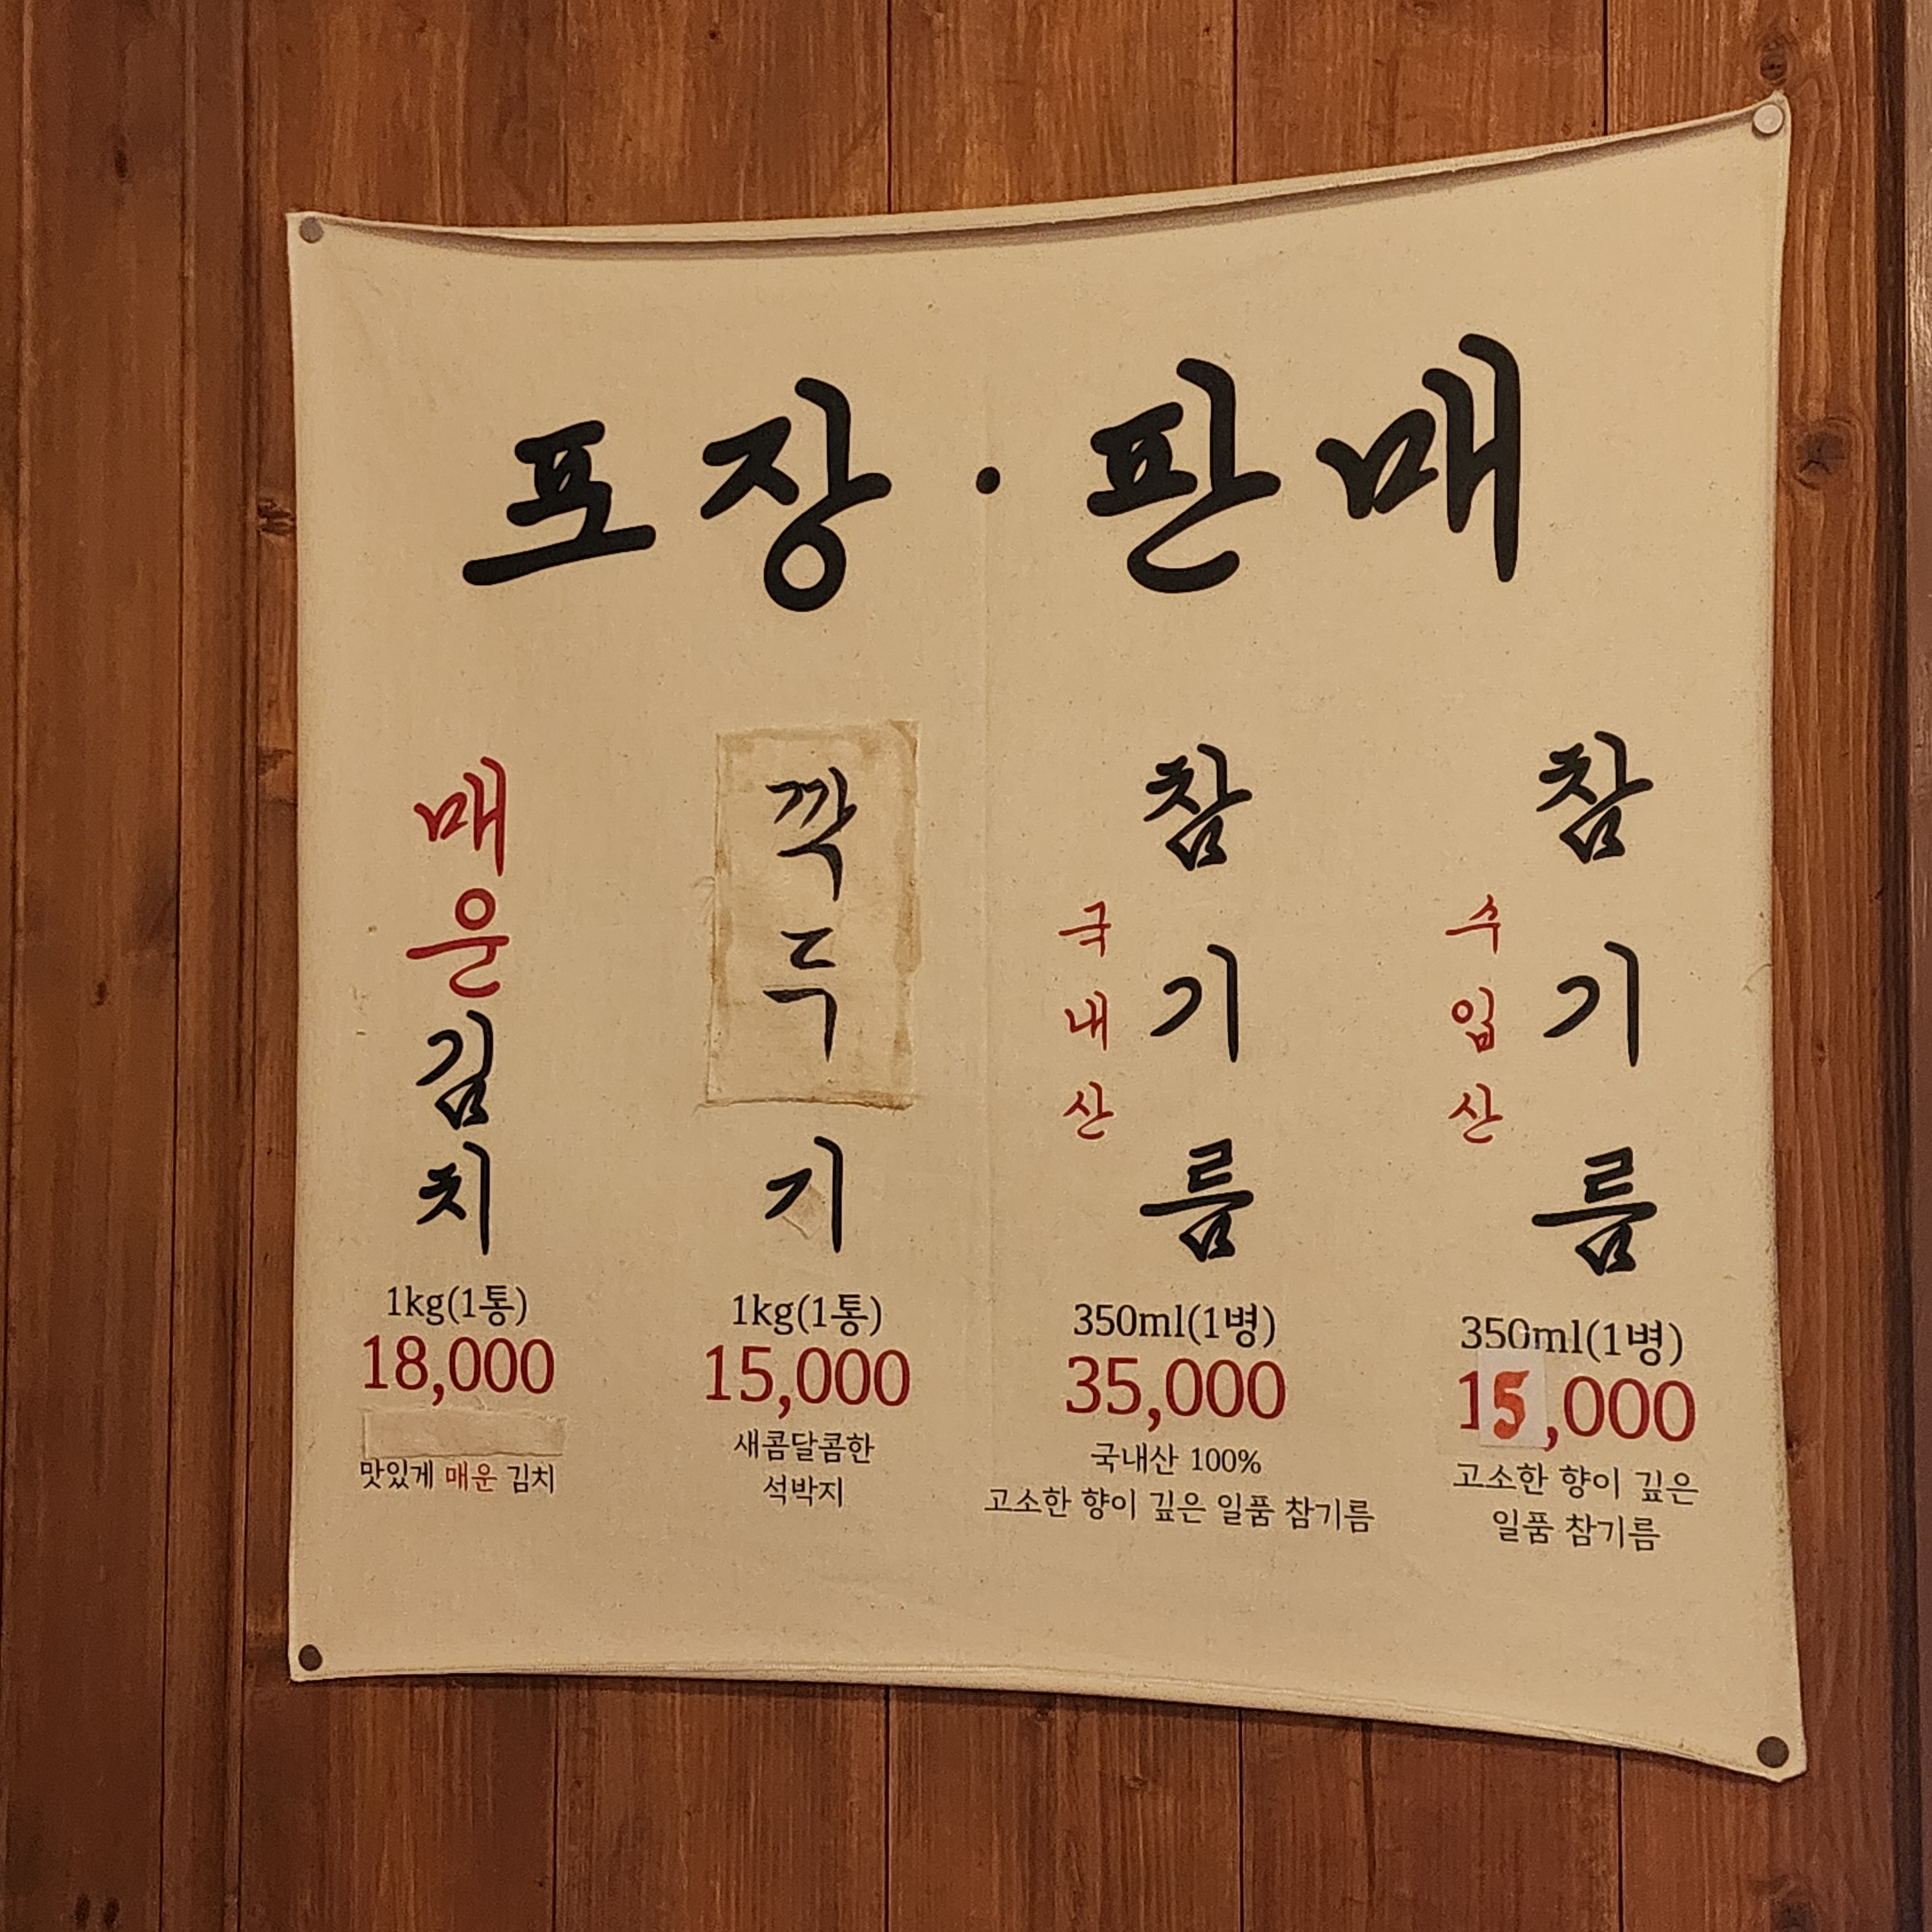 포장·판매
매운김치
1kg(1통)
18,000
맛있게 매운 김치
깍두기
1kg(1통)
15,000
새콤달콤한
석박지
참기름
국내산
350ml(1병)
35,000
국내산 100%
고소한 향이 깊은 일품 참기름
참기름
수입산
350ml(1병)
15,000
고소한 향이 깊은
일품 참기름